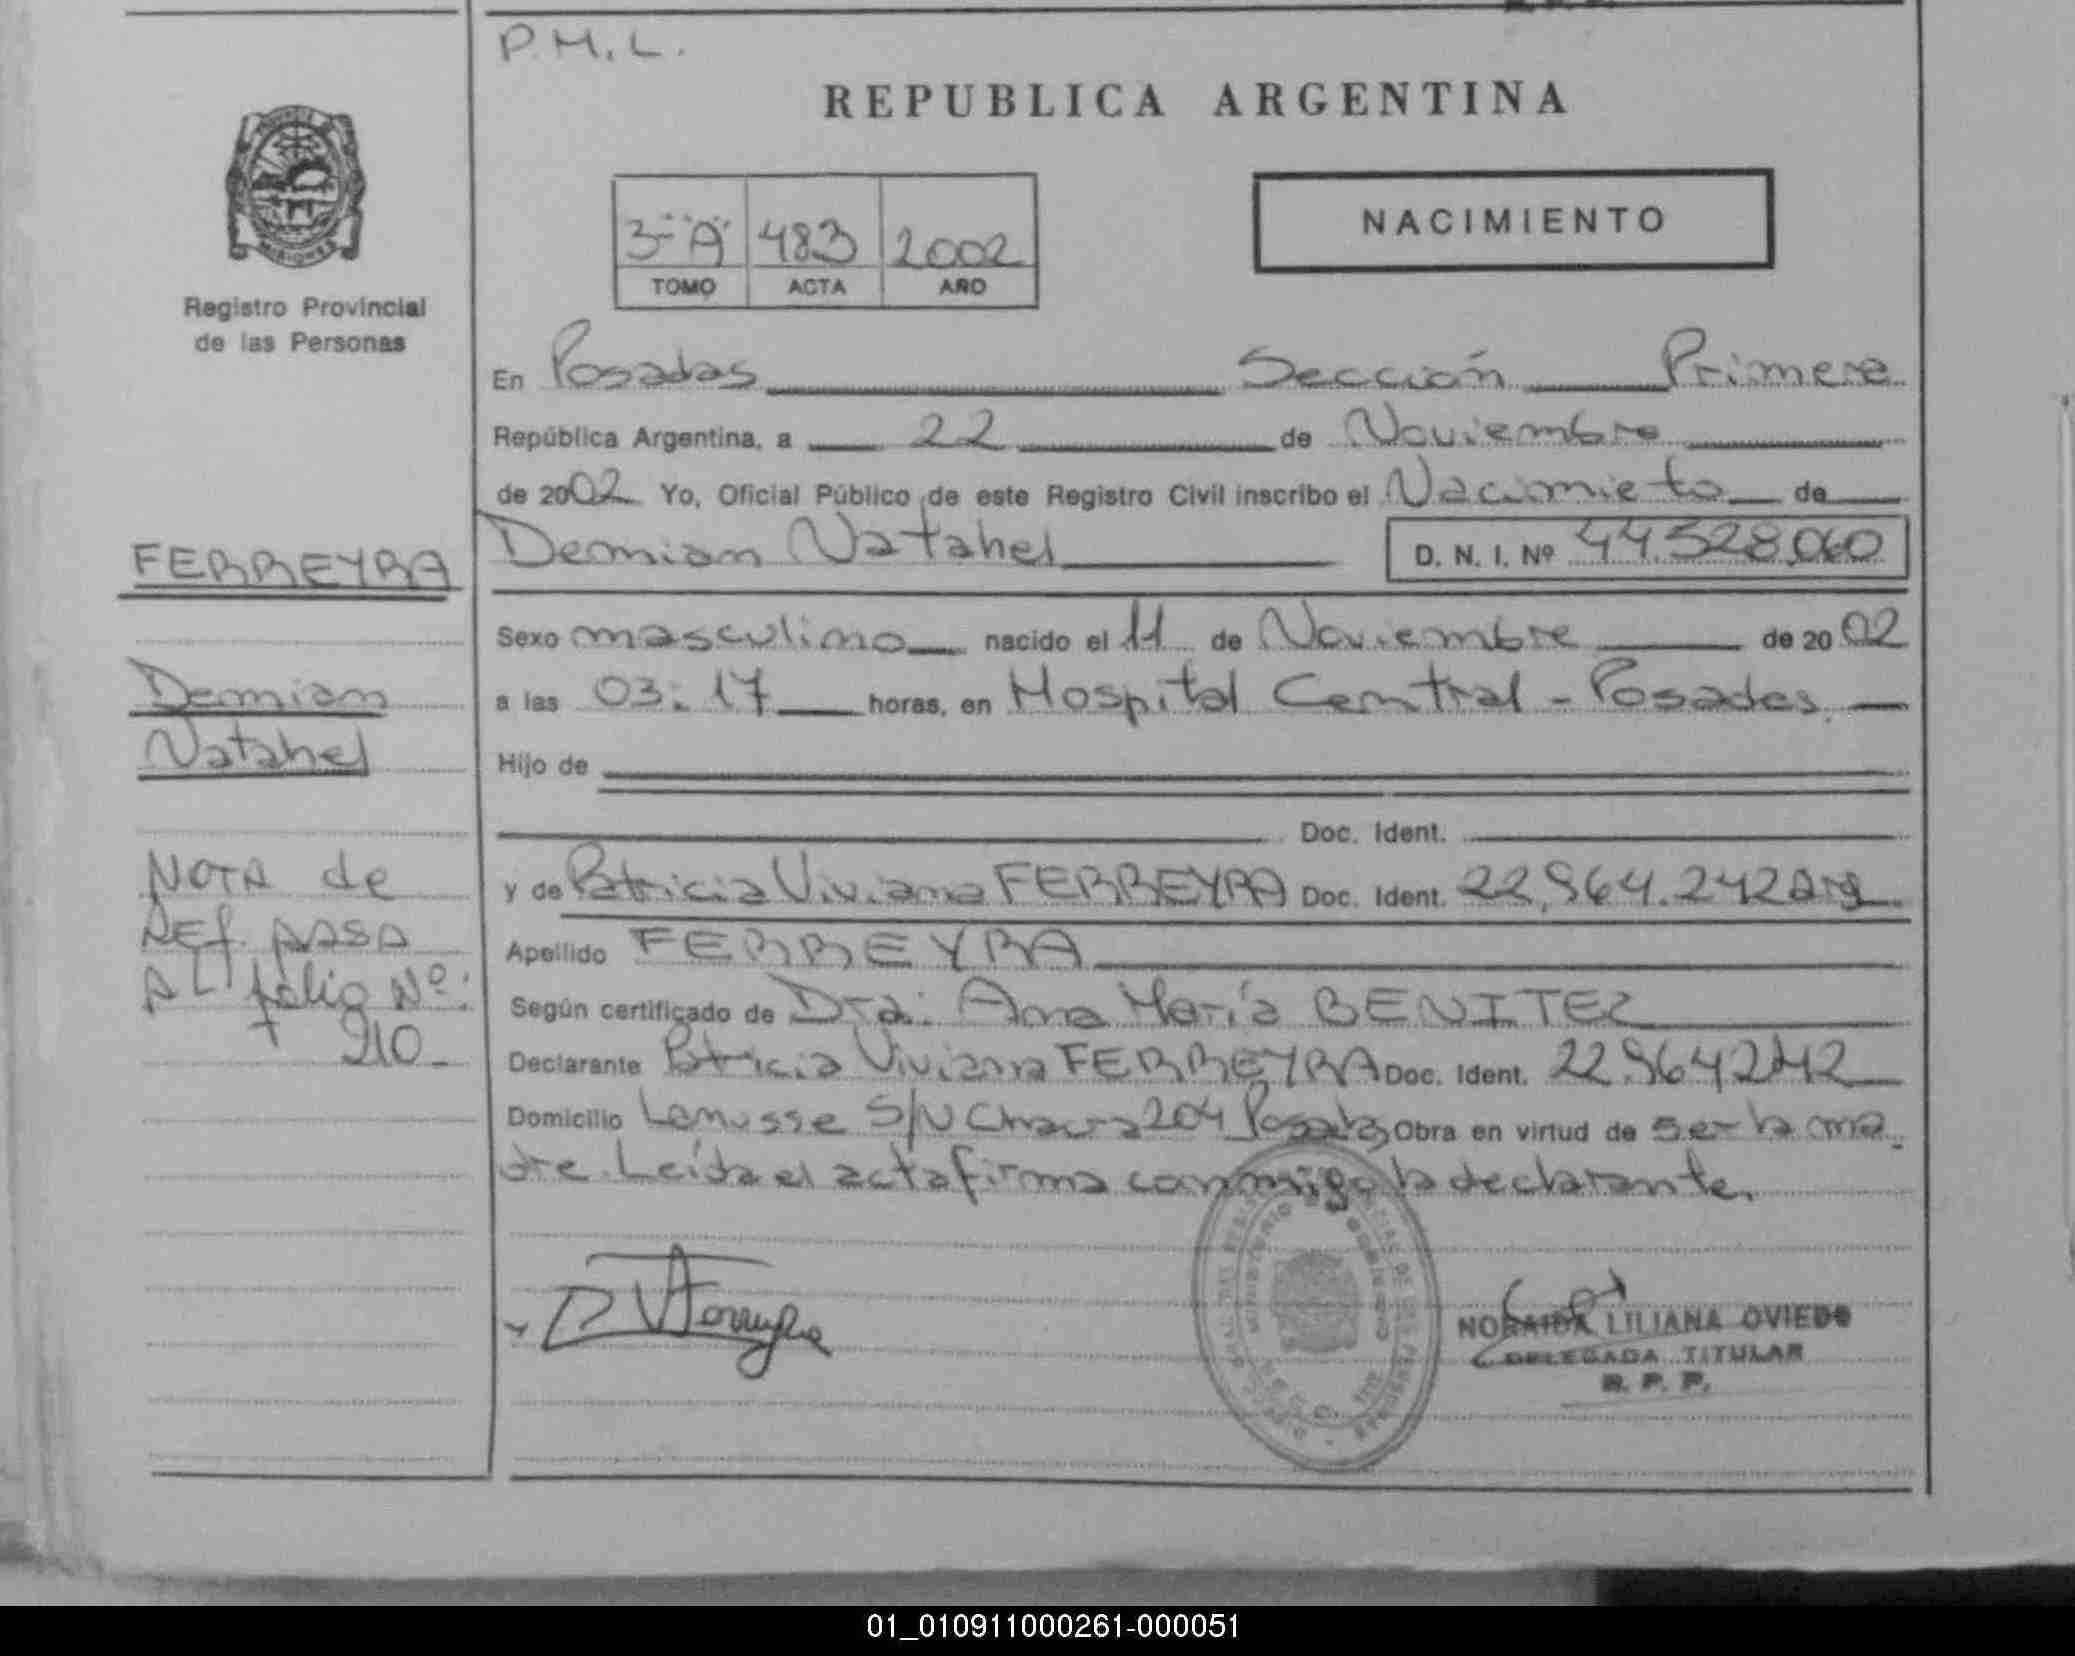 P.M.L.
REPUBLICA ARGENTINA
MISIONES
Registro Provincial
de las Personas
3-"A" 483 2002
TOMO ACTA AÑO
NACIMIENTO
En Posadas Sección Primera
República Argentina, a 22 de Noviembre
de 2002 Yo, Oficial Público de este Registro Civil inscribo el Nacimieto de
Demian Natahel D. N. I. Nº 44.528.060
FERREYRA
Sexo masculino nacido el 11 de Noviembre de 2002
Demian
a las 03:17 horas, en Hospital Central - Posadas.
Natahel
Hijo de
Doc. Ident.
NOTA de
y de Patricia Viviana FERREYRA Doc. Ident. 22.964.242 arg
REf. PASA
Apellido FERREYRA
AL folio Nº:
Según certificado de Dra. Ana María BENITEZ
210
Declarante Patricia Viviana FERREYRA Doc. Ident. 22.964242
Domicilio Lanusse S/N Chacra 204 Posadas Obra en virtud de ser la ma
dre. Leída el acta firma conmigo la declarante.
NORAIDA LILIANA OVIEDO
DELEGADA TITULAR
R. P. P.
01_010911000261-000051